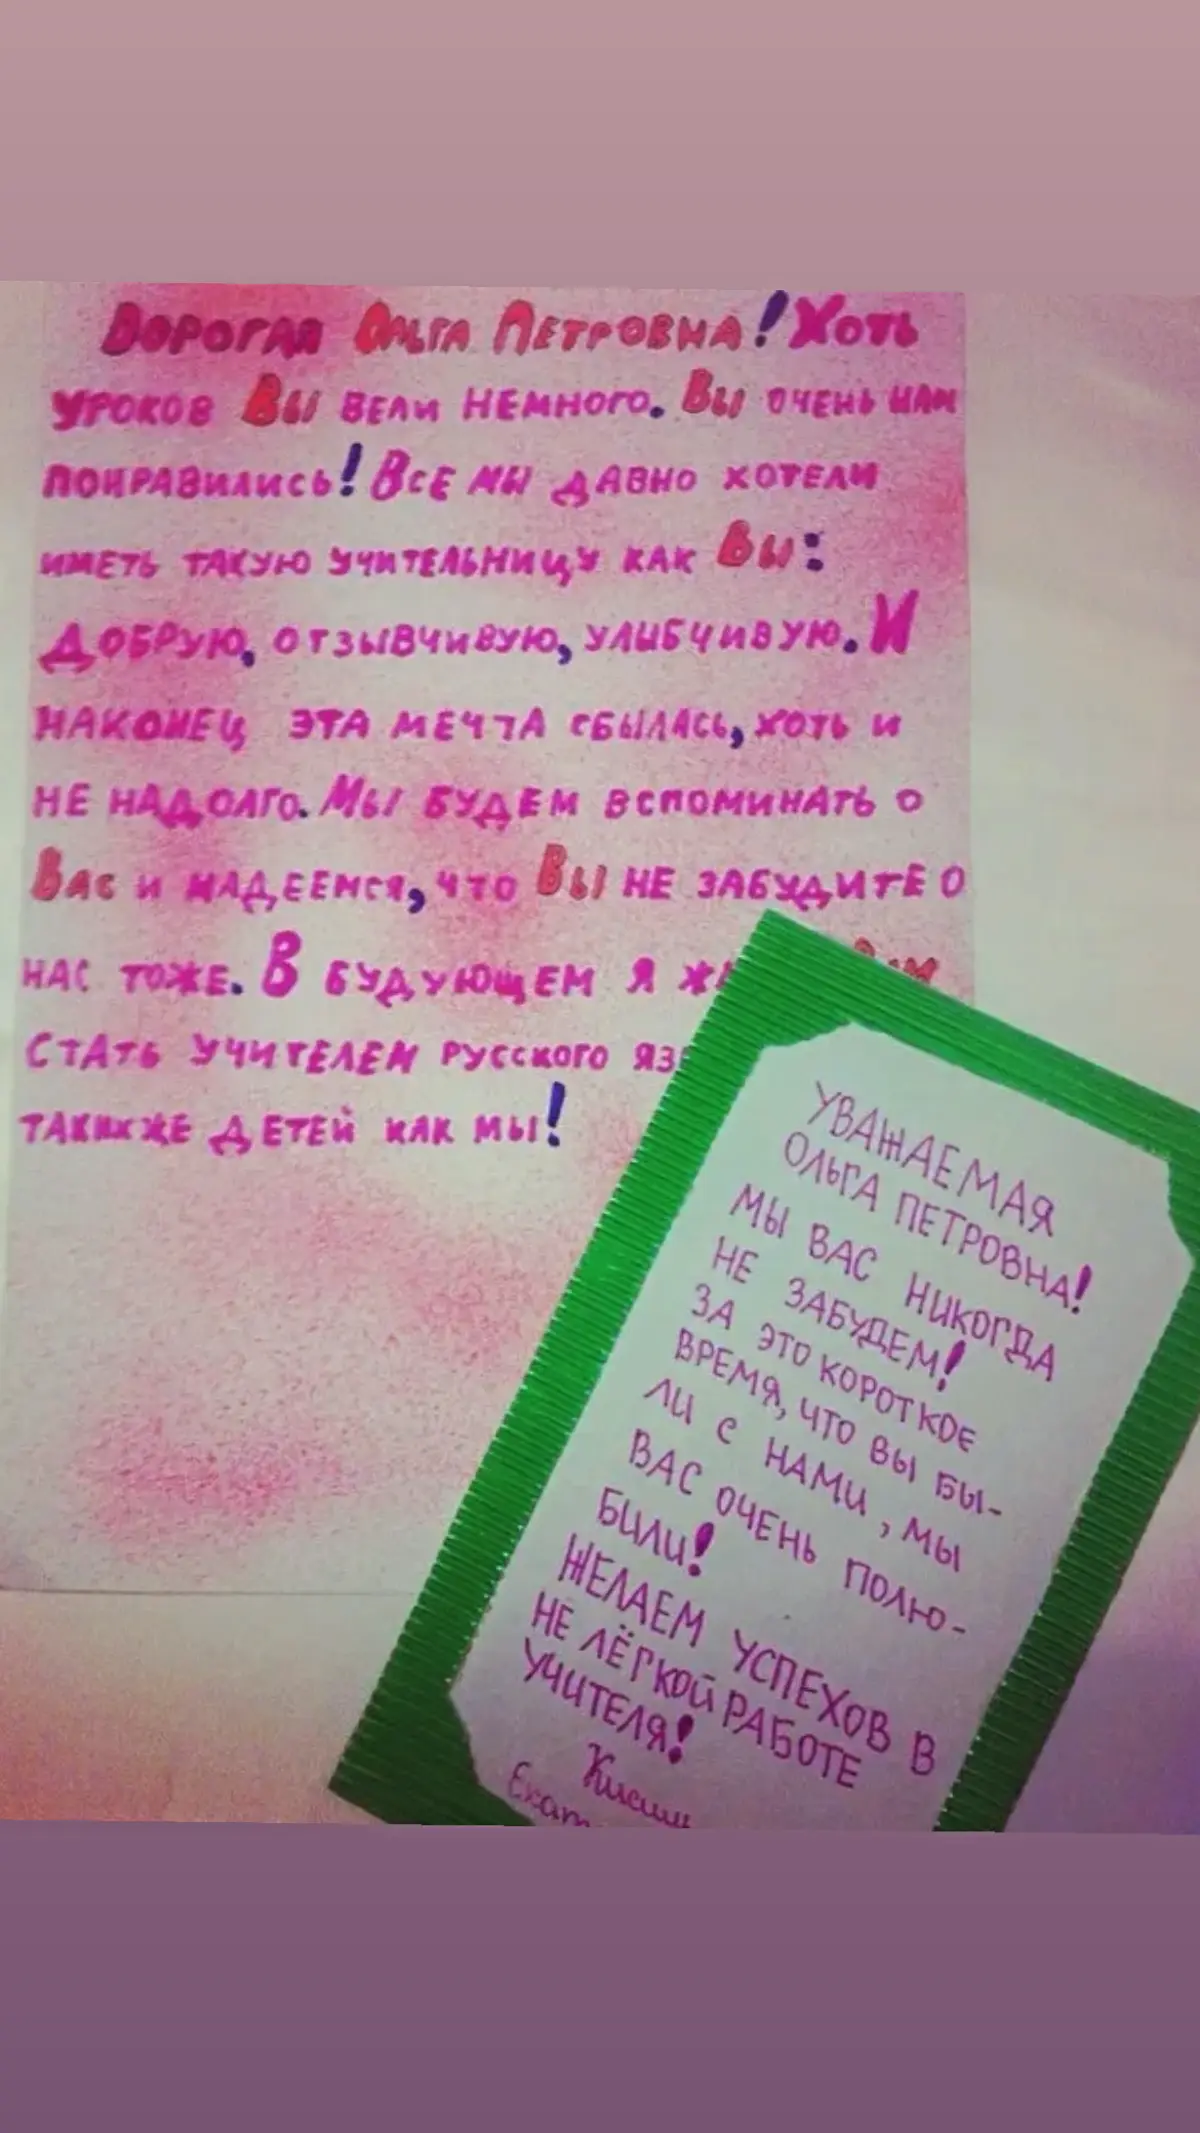 Дорогая Ольга Петровна! Хоть
уроков Вы вели немного. Вы очень нам
понравились! Все мы давно хотели
иметь такую учительницу как Вы:
добрую, отзывчивую, улыбчивую. И
наконец эта мечта сбылась, хоть и
не надолго. Мы будем вспоминать о
Вас и надеемся, что Вы не забудите о
нас тоже. В будующем я
стать учителем русского
такихже детей как мы!
УВАЖАЕМАЯ
ОЛЬГА ПЕТРОВНА!
МЫ ВАС НИКОГДА
НЕ ЗАБУДЕМ!
ЗА ЭТО КОРОТКОЕ
ВРЕМЯ, ЧТО ВЫ БЫ-
ЛИ С НАМИ, МЫ
ВАС ОЧЕНЬ ПОЛЮ-
БИЛИ!
ЖЕЛАЕМ УСПЕХОВ В
НЕ ЛЁГКОЙ РАБОТЕ
УЧИТЕЛЯ!